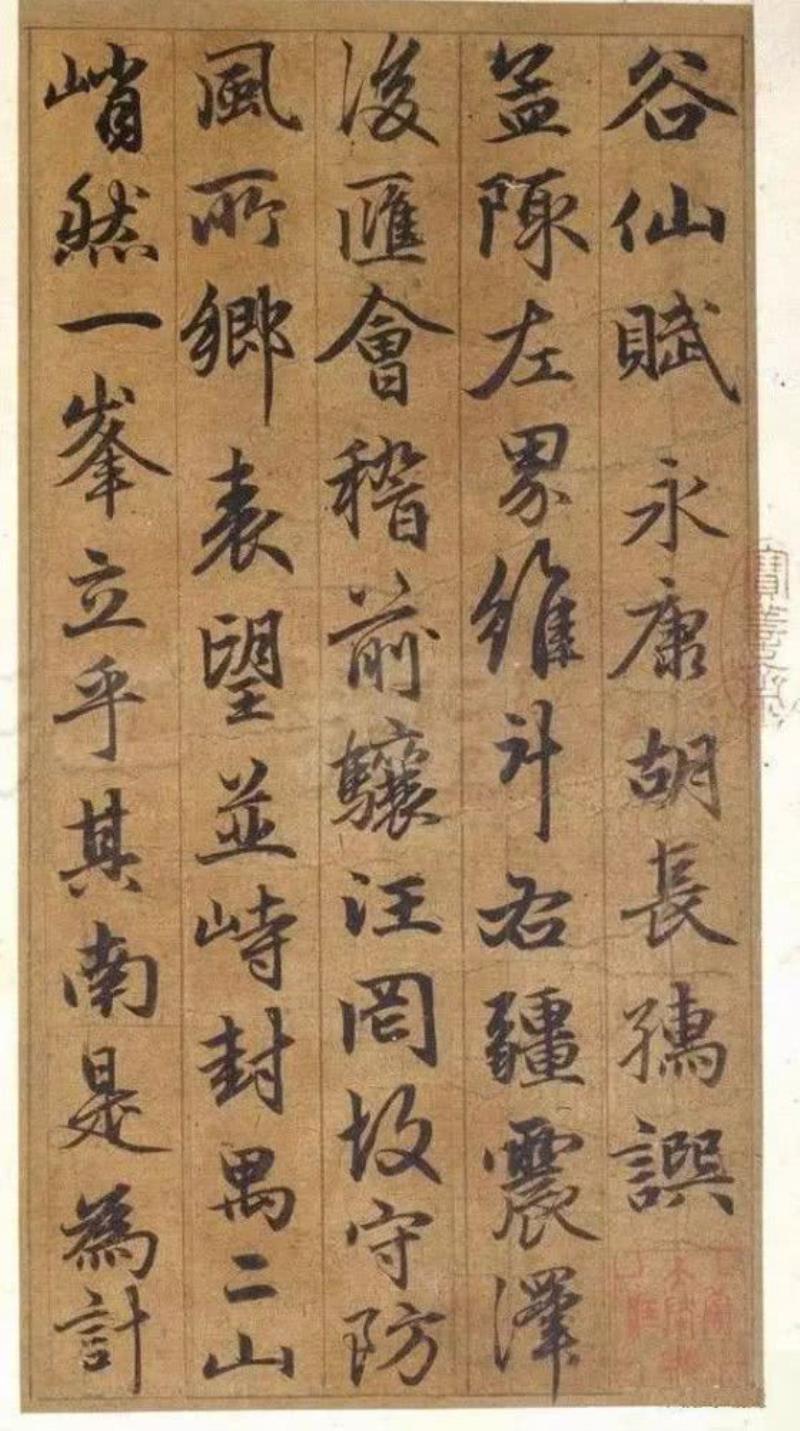 谷仙賦永康胡長孺譔
盖陳左界維斗右疆震澤
後匯會稽前驤汪罔故守防
風所鄉表望並峙封禺二山
峭然一峯立乎其南是為計